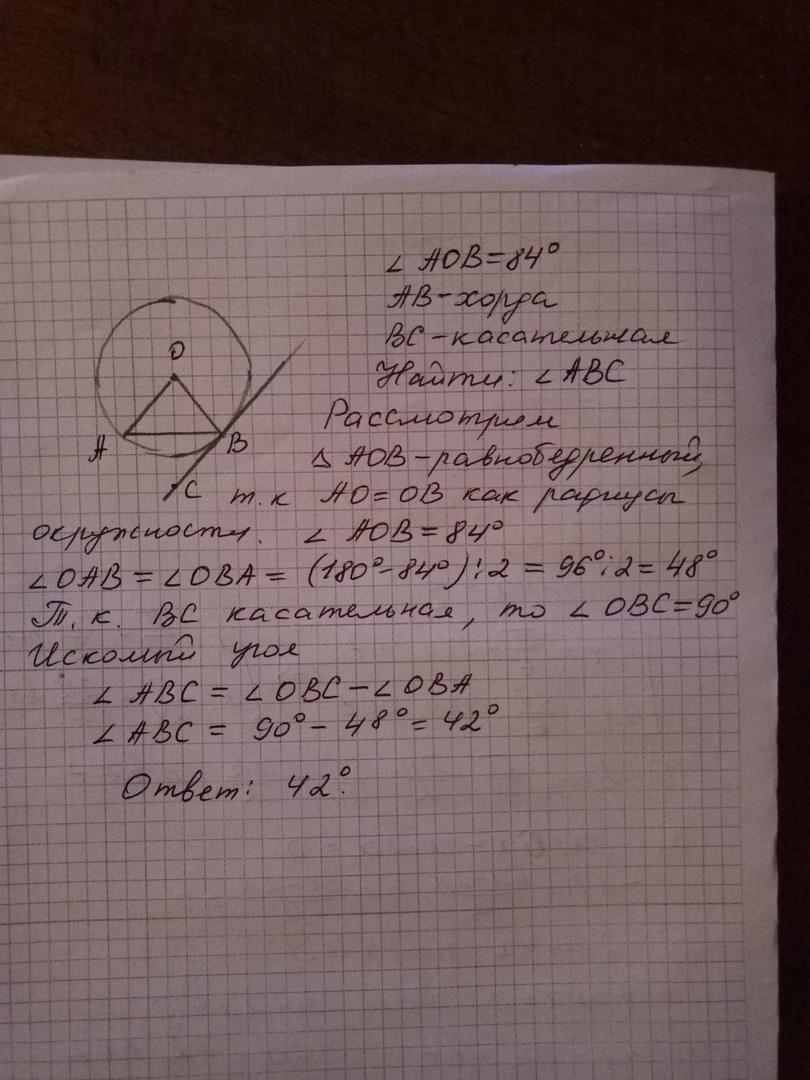 ∠ AOB=84°
AB-хорда
BC-касательная
Найти: ∠ABC
O
A
B
C
Рассмотрим
Δ AOB-равнобедренный,
т.к AO=OB как радиусы
окружности. ∠ AOB=84°
∠OAB=∠OBA= (180°-84°):2 = 96°:2=48°
Т.к. BC касательная, то ∠OBC=90°
Искомый угол
∠ABC = ∠OBC-∠OBA
∠ABC = 90°- 48°=42°
Ответ: 42°.